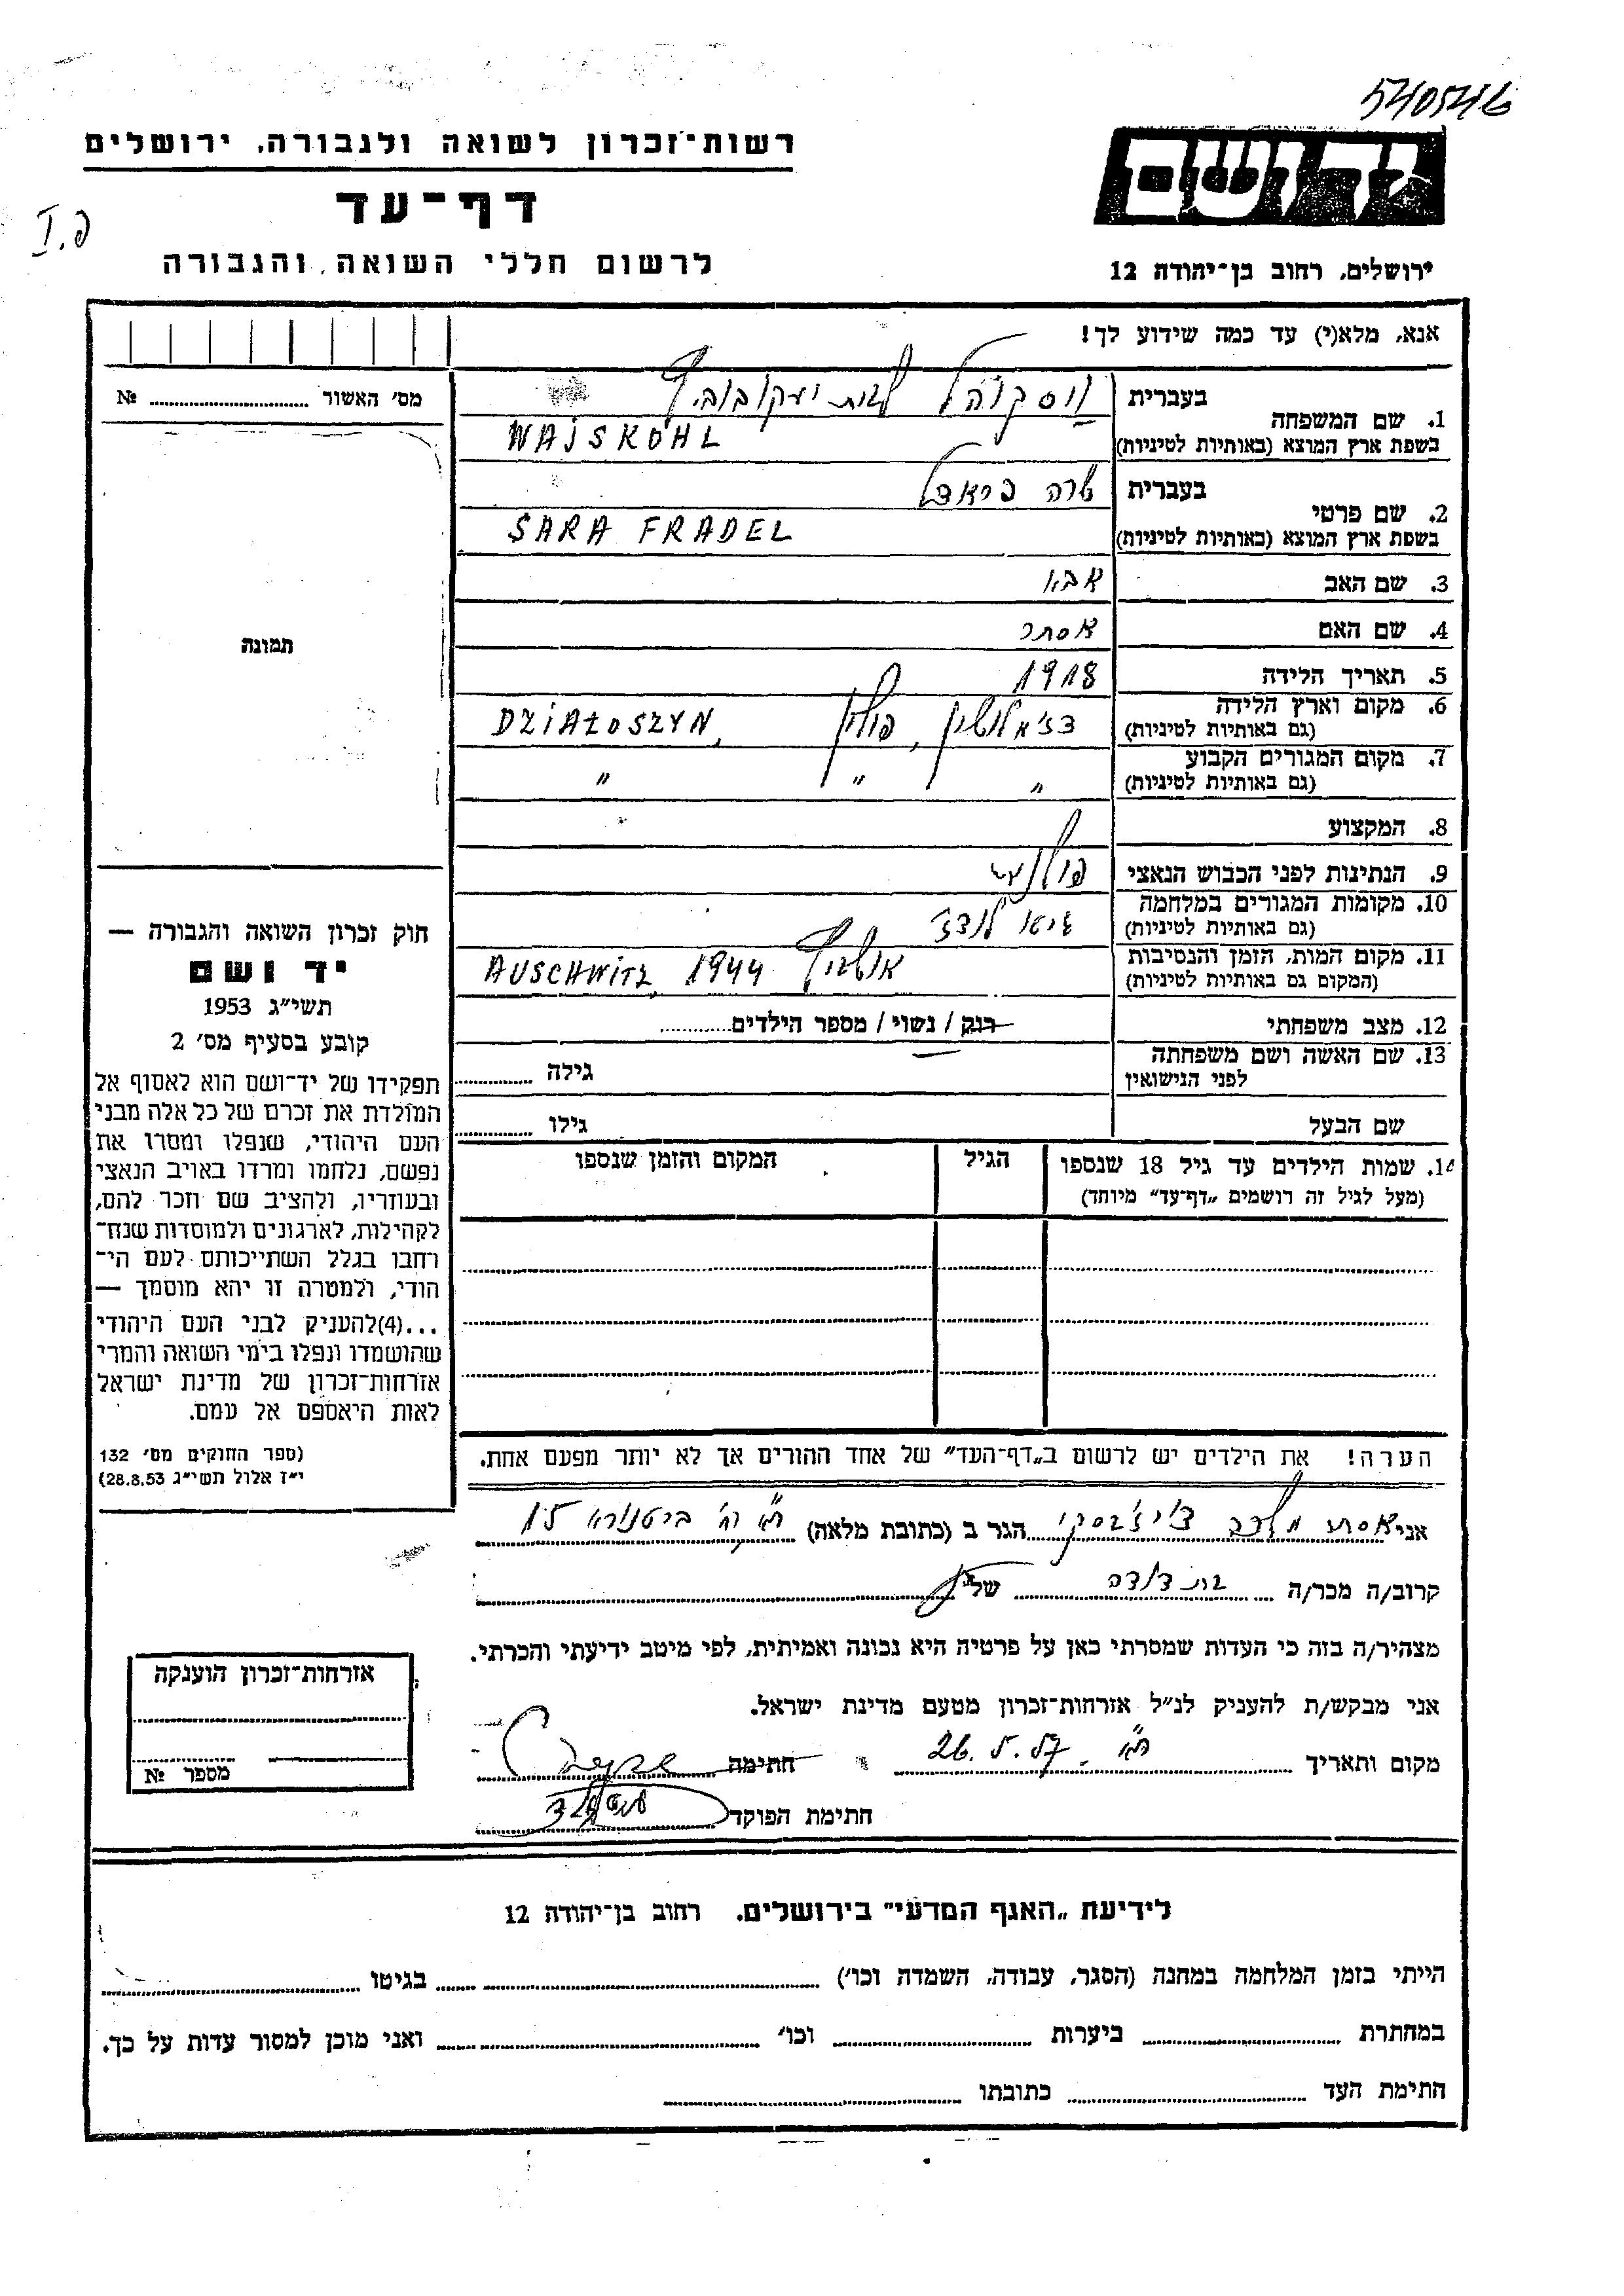 540546
רשות־זכרון לשואה ולגבורה, ירושלים
יד ושם
דף־עד
פ.I
לרשום חללי השואה והגבורה
ירושלים, רחוב בן־יהודה 12
אנא, מלא(י) עד כמה שידוע לך!
מס׳ האשור № 
תמונה
1. שם המשפחה
בעברית וייסקוהל לבית יעקובוביץ
בשפת ארץ המוצא (באותיות לטיניות) WAJSKOHL
2. שם פרטי
בעברית שרה פראדל
בשפת ארץ המוצא (באותיות לטיניות) SARA FRADEL
3. שם האב אבא
4. שם האם אסתר
5. תאריך הלידה 1918
6. מקום וארץ הלידה (גם באותיות לטיניות) דז׳אלושין, פולין DZIAŁOSZYN,
7. מקום המגורים הקבוע (גם באותיות לטיניות) " " "
8. המקצוע
9. הנתינות לפני הכבוש הנאצי
10. מקומות המגורים במלחמה (גם באותיות לטיניות) גיטו לודז׳
11. מקום המות, הזמן והנסיבות (המקום גם באותיות לטיניות) אושביץ AUSCHWITZ, 1944
12. מצב משפחתי רוק / נשוי / מספר הילדים
13. שם האשה ושם משפחתה לפני הנישואין גילה
שם הבעל גילו
14. שמות הילדים עד גיל 18 שנספו (מעל לגיל זה רושמים „דף־עד״ מיוחד) הגיל המקום והזמן שנספו
חוק זכרון השואה והגבורה —
יד ושם
תשי״ג 1953
קובע בסעיף מס׳ 2
תפקידו של יד־ושם הוא לאסוף אל
המולדת את זכרם של כל אלה מבני
העם היהודי, שנפלו ומסרו את
נפשם, נלחמו ומרדו באויב הנאצי
ובעוזריו, ולהציב שם וזכר להם,
לקהילות, לארגונים ולמוסדות שנח־
רבו בגלל השתייכותם לעם הי־
הודי, ולמטרה זו יהא מוסמך —
...(4)להעניק לבני העם היהודי
שהושמדו ונפלו בימי השואה והמרי
אזרחות־זכרון של מדינת ישראל
לאות היאספם אל עמם.
(ספר החוקים מס׳ 132
י״ז אלול תשי״ג 28.8.53)
הערה! את הילדים יש לרשום ב„דף־העד״ של אחד ההורים אך לא יותר מפעם אחת.
אני אסתר מלכה הגר ב (כתובת מלאה) ת״א רח׳ 15
קרוב/ה מכר/ה בת דודה של
מצהיר/ה בזה כי העדות שמסרתי כאן על פרטיה היא נכונה ואמיתית, לפי מיטב ידיעתי והכרתי.
אני מבקש/ת להעניק לנ״ל אזרחות־זכרון מטעם מדינת ישראל.
מקום ותאריך ת״א 26.5.57 חתימה
חתימת הפוקד
אזרחות־זכרון הוענקה
מספר №
לידיעת „האגף המדעי״ בירושלים, רחוב בן־יהודה 12
הייתי בזמן המלחמה במחנה (הסגר, עבודה, השמדה וכו׳) בגיטו
במחתרת ביערות וכו׳ ואני מוכן למסור עדות על כך.
חתימת העד כתובתו